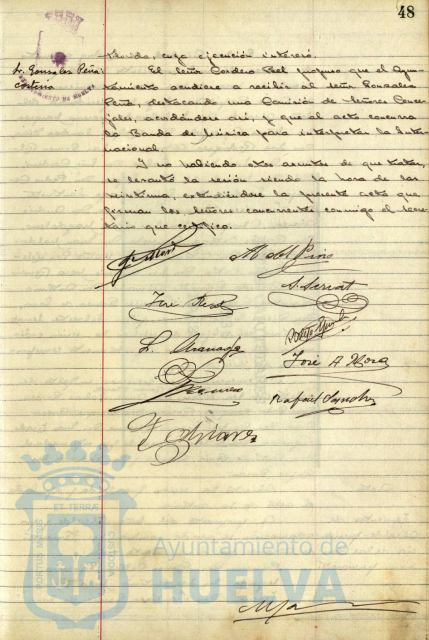 48
Sr. Gonzalez Peña:
cortesía
Florido, cuya ejecución interesó.
El señor Cordero Bel propuso que el Ayun-
tamiento acudiera a recibir al señor Gonzalez
Peña, destacando una Comisión de señores Conce-
jales, acordándose así, y que al acto concurra
la Banda de Música para interpretar la Inter-
nacional.
Y no habiendo otros asuntos de que tratar,
se levantó la sesión siendo la hora de las
veintiuna, extendiéndose la presente acta que
firman los señores concurrentes conmigo el Secre-
tario que certifico.
M. del Pino
S. Servat
José
L.
José A Mora
Rafael Sanchez
PORTUS MARIS
ET TERRAE
CUSTODIA
Ayuntamiento de
HUELVA